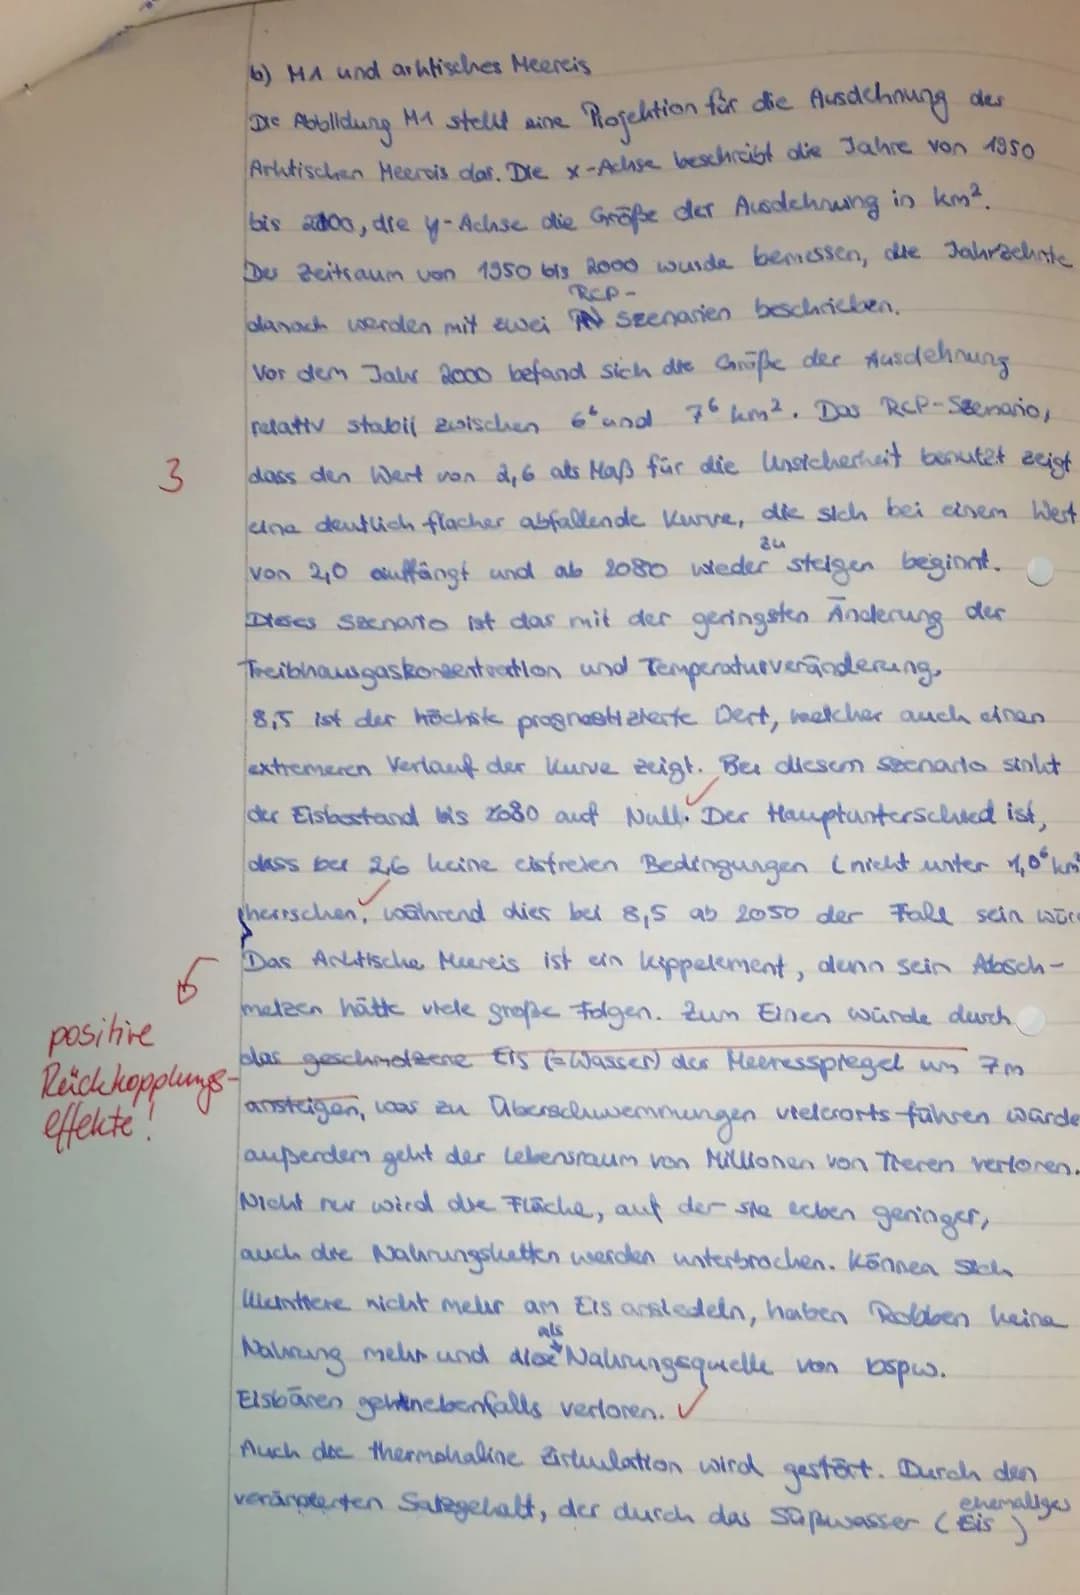 b) M1 und arktisches Meereis
Die Abbildung M1 stellt eine Projektion für die Ausdehnung des
Arktischen Meereis dar. Die x-Achse beschreibt die Jahre von 1950
bis 2100, die y-Achse die Größe der Ausdehnung in km².
Der Zeitraum von 1950 bis 2000 wurde bemessen, die Jahrzehnte
RCP-
danach werden mit zwei Szenarien beschrieben.
Vor dem Jahr 2000 befand sich die Größe der Ausdehnung
relativ stabil zwischen 6⁶ und 7⁶ km². Das RCP-Szenario,
3
dass den Wert von 2,6 als Maß für die Unsicherheit benutzt zeigt
eine deutlich flacher abfallende Kurve, die sich bei einem Wert
zu
von 2,0 auffängt und ab 2080 wieder steigen beginnt.
Dieses Szenario ist das mit der geringsten Änderung der
Treibhausgaskonzentration und Temperaturveränderung.
8,5 ist der höchste prognostizierte Wert, welcher auch einen
extremeren Verlauf der Kurve zeigt. Bei diesem Szenario sinkt
der Eisbestand bis 2080 auf Null. Der Hauptunterschied ist,
dass bei 2,6 keine eisfreien Bedingungen (nicht unter 1,0⁶ km²
herrschen, während dies bei 8,5 ab 2050 der Fall sein
Das Arktische Meereis ist ein Kippelement, denn sein Absch-
melzen hätte viele große Folgen. Zum Einen würde durch
positive
das geschmolzene Eis (=Wasser) der Meeresspiegel um 7m
Rückkopplungs-
ansteigen, was zu Überschwemmungen vielerorts führen würde
effekte!
außerdem geht der Lebensraum von Millionen von Tieren verloren.
Nicht nur wird die Fläche, auf der sie leben geringer,
auch die Nahrungsketten werden unterbrochen. Können sich
Kleintiere nicht mehr am Eis ansiedeln, haben Robben keine
als
Nahrung mehr und diese Nahrungsquelle von bspw.
Eisbären gehen ebenfalls verloren.
Auch die thermohaline Zirkulation wird gestört. Durch den
ehemaliges
veränderten Salzgehalt, der durch das Süßwasser (Eis)